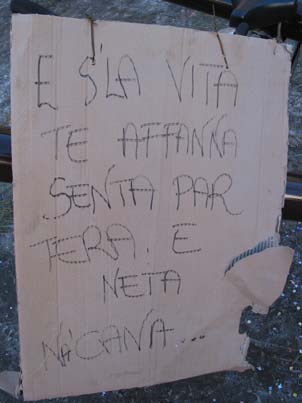 E S'LA VITA
TE AFFANNA
SENTA PAR
TERA. E
NETA
NA'CANA...